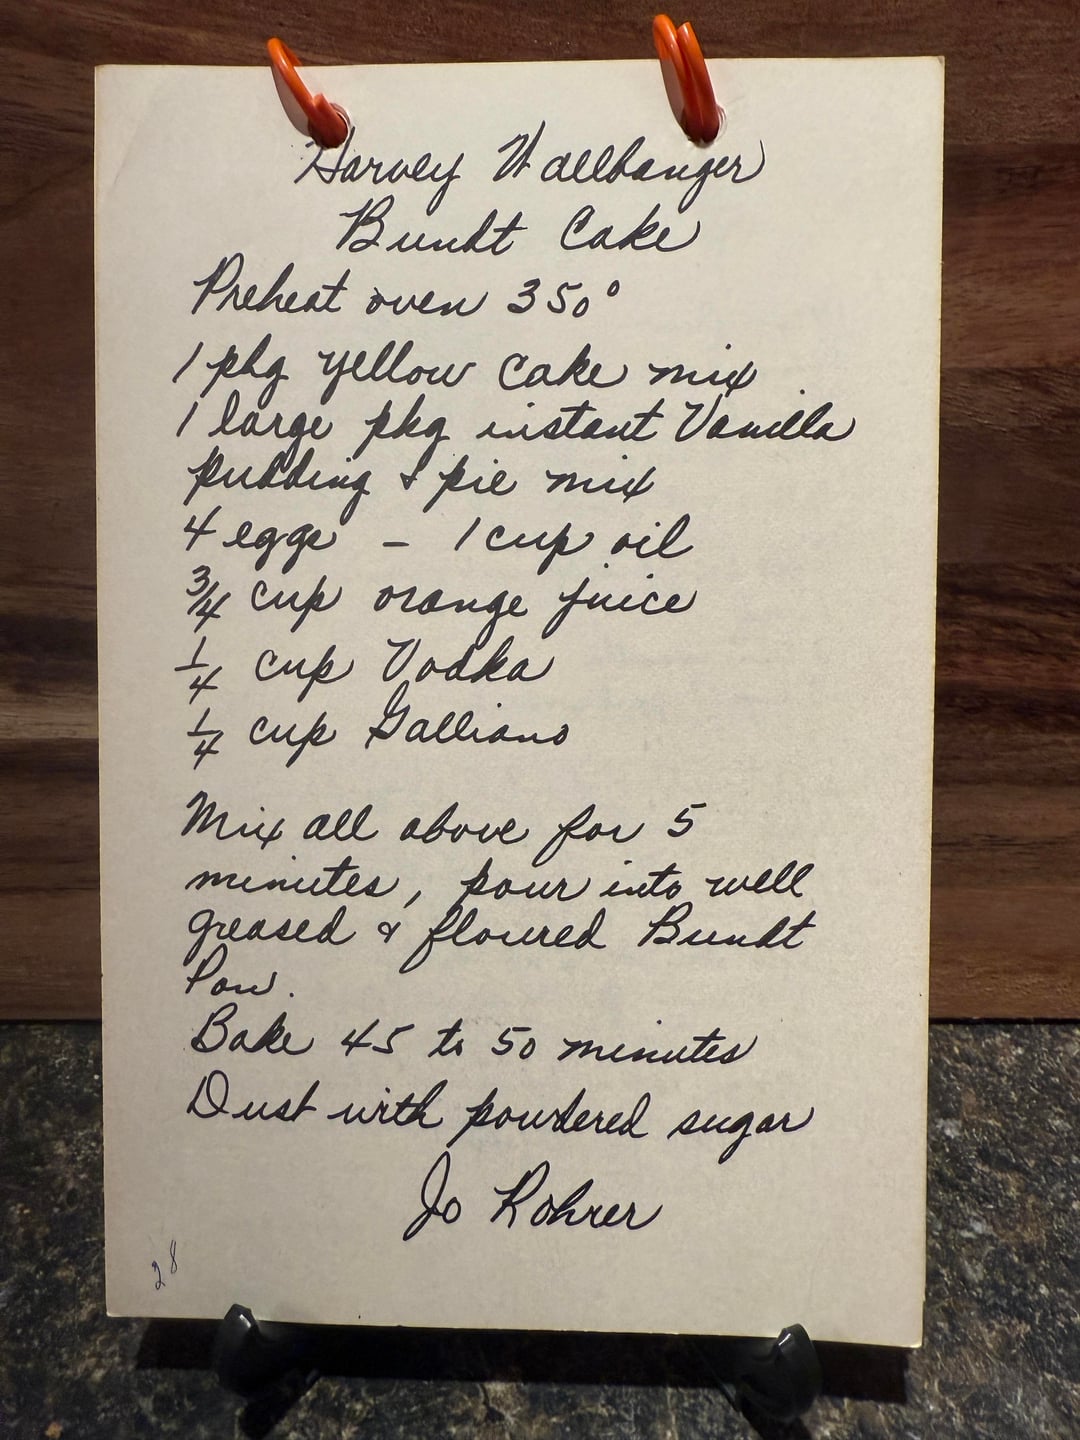 Harvey Wallbanger
Bundt Cake
Preheat oven 350°
1 pkg yellow cake mix
1 large pkg instant Vanilla
pudding & pie mix
4 eggs - 1 cup oil
3/4 cup orange juice
1/4 cup Vodka
1/4 cup Galliano
Mix all above for 5
minutes, pour into well
greased & floured Bundt
Pan.
Bake 45 to 50 minutes
Dust with powdered sugar
Jo Rohrer
28